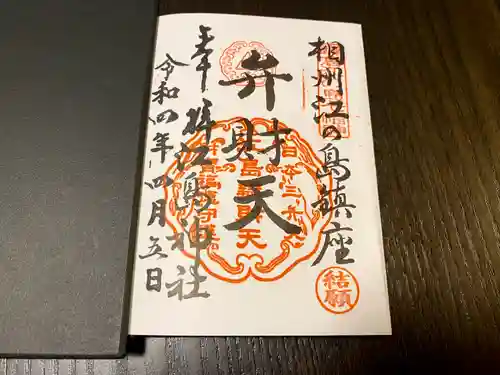 相州江の島鎮座
弁財天
奉拝 江島神社
令和四年四月五日
日本三弁天
江島弁財天
結願